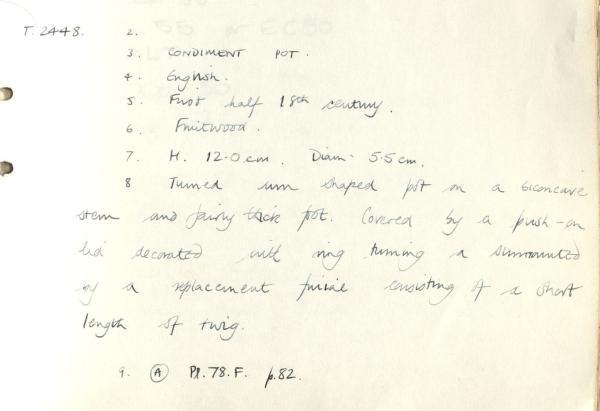 T. 2448. 2.
3. CONDIMENT POT.
4. English.
5. First half 18th century.
6. Fruitwood.
7. H. 12.0cm. Diam. 5.5cm.
8 Turned urn shaped pot on a biconcave
stem and fairly thick foot. Covered by a push-on
lid decorated with ring turning & surmounted
by a replacement finial consisting of a short
length of twig.
9. (A) Pl. 78. F. p.82.